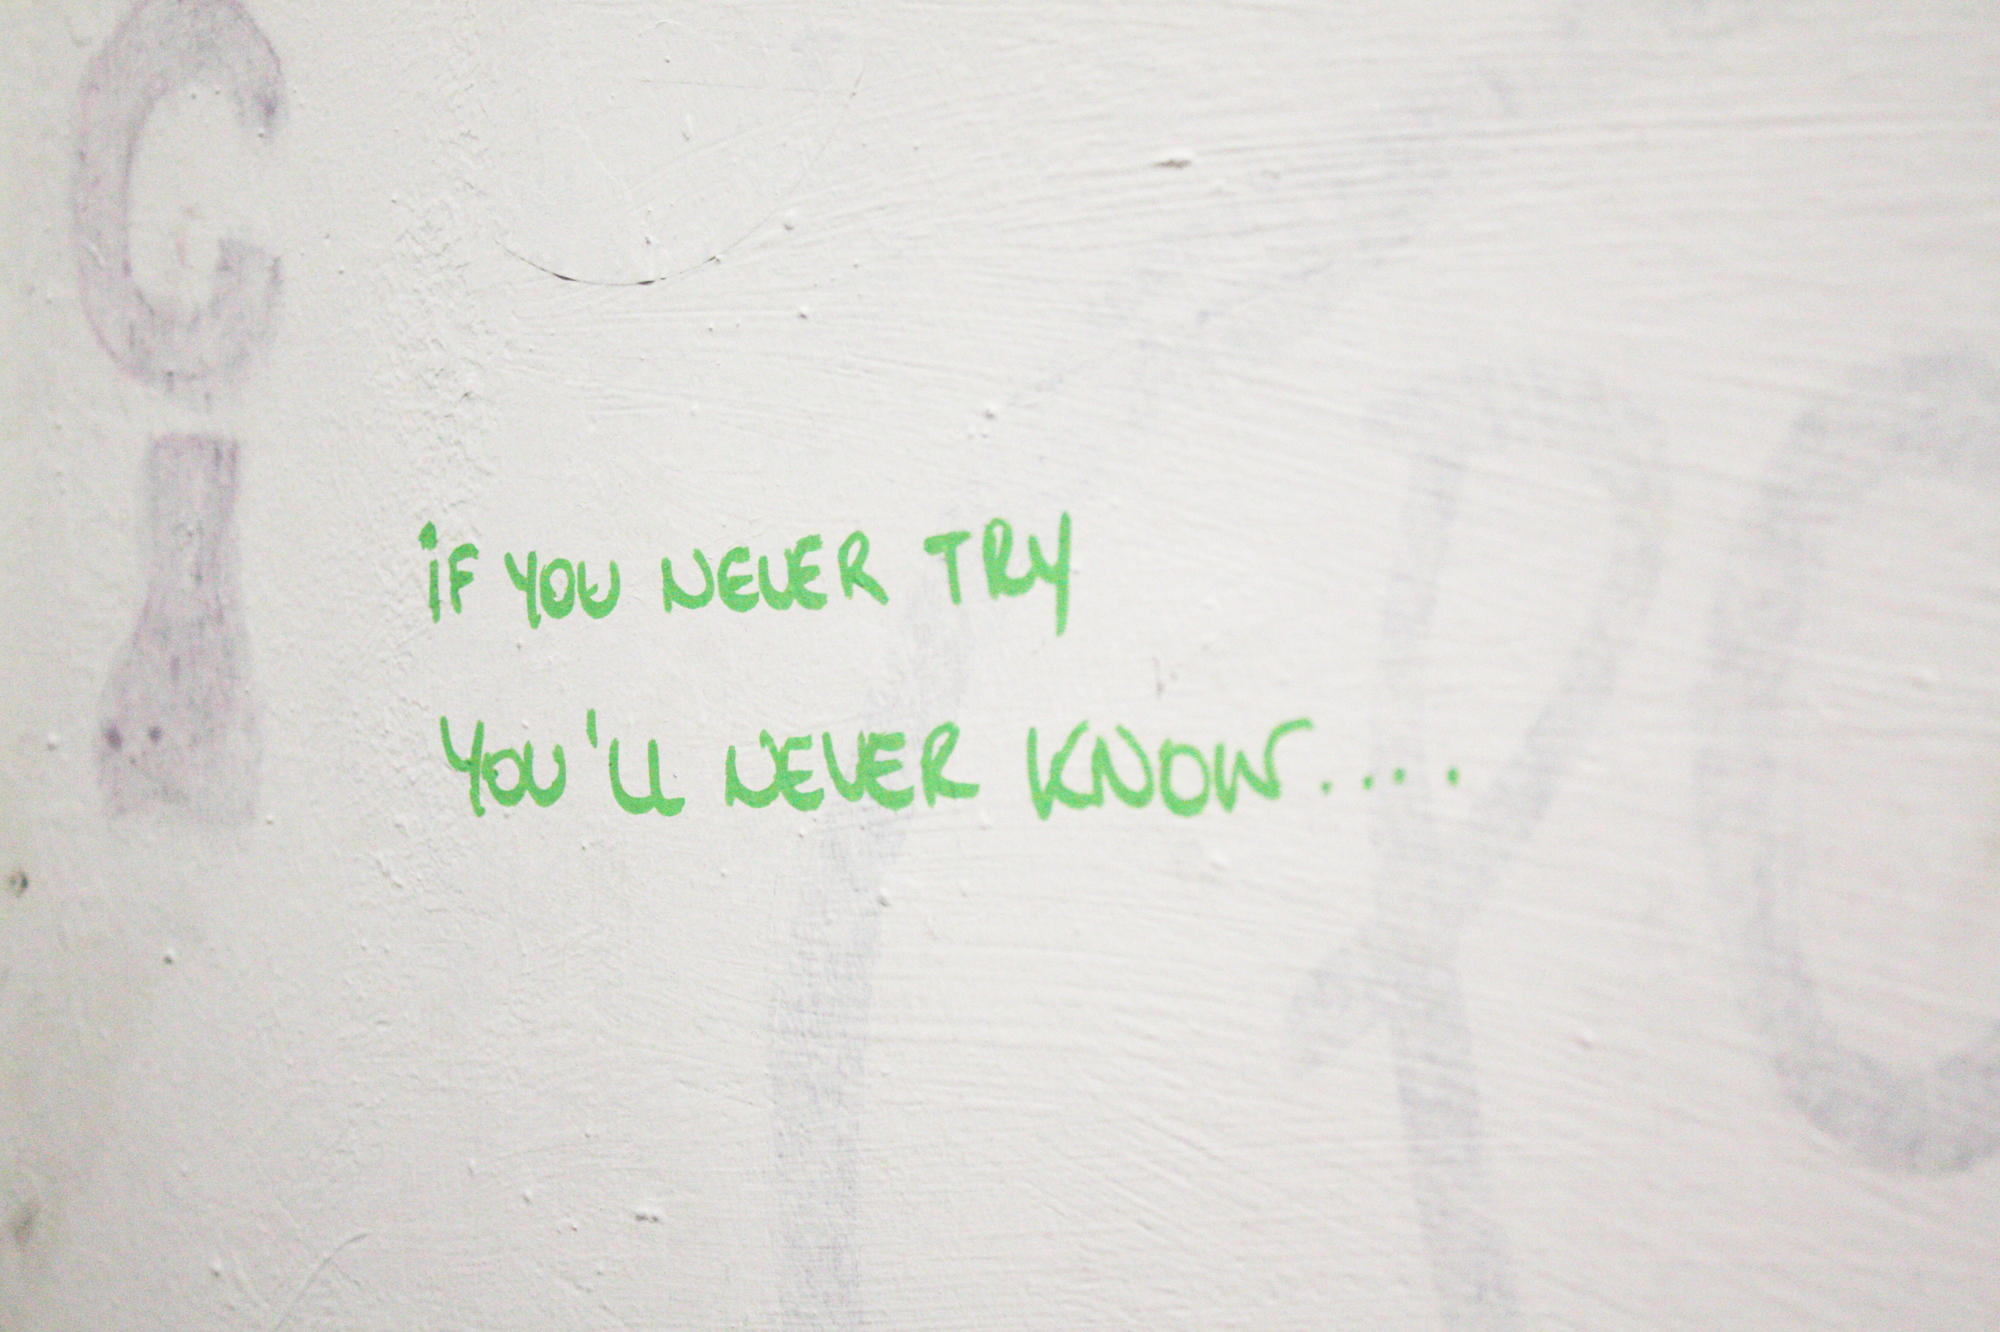 iF YOU NEVER TRY
YOU'LL NEVER KNOW....